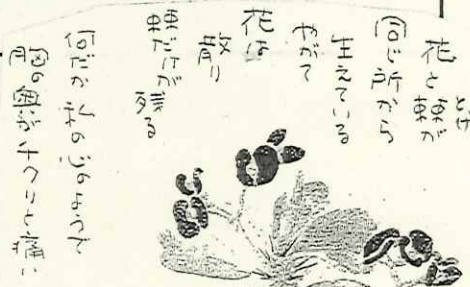 花と棘が
とげ
同じ所から
生えている
やがて
花は
散り
棘だけが
残る
何だか私の心のようで
胸の奥がチクリと痛い